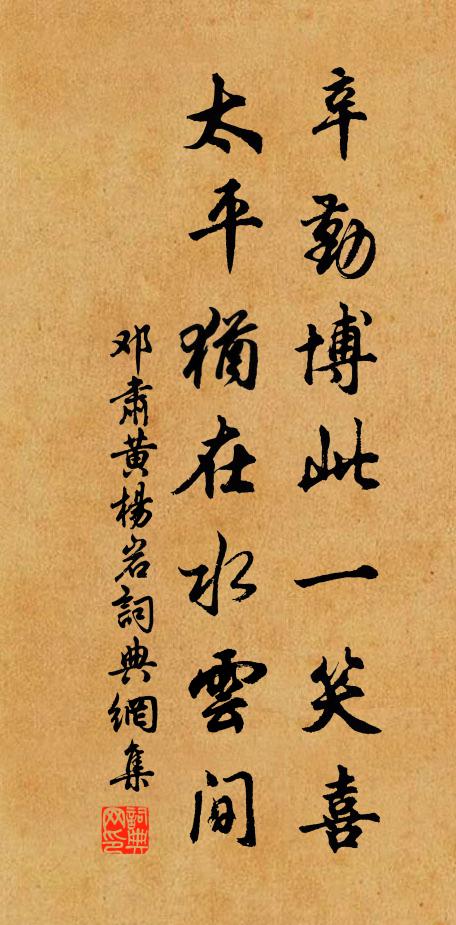 辛勤博此一笑喜
太平猶在水雲間
邓肅黄楊岩詞典網集
詞典网印